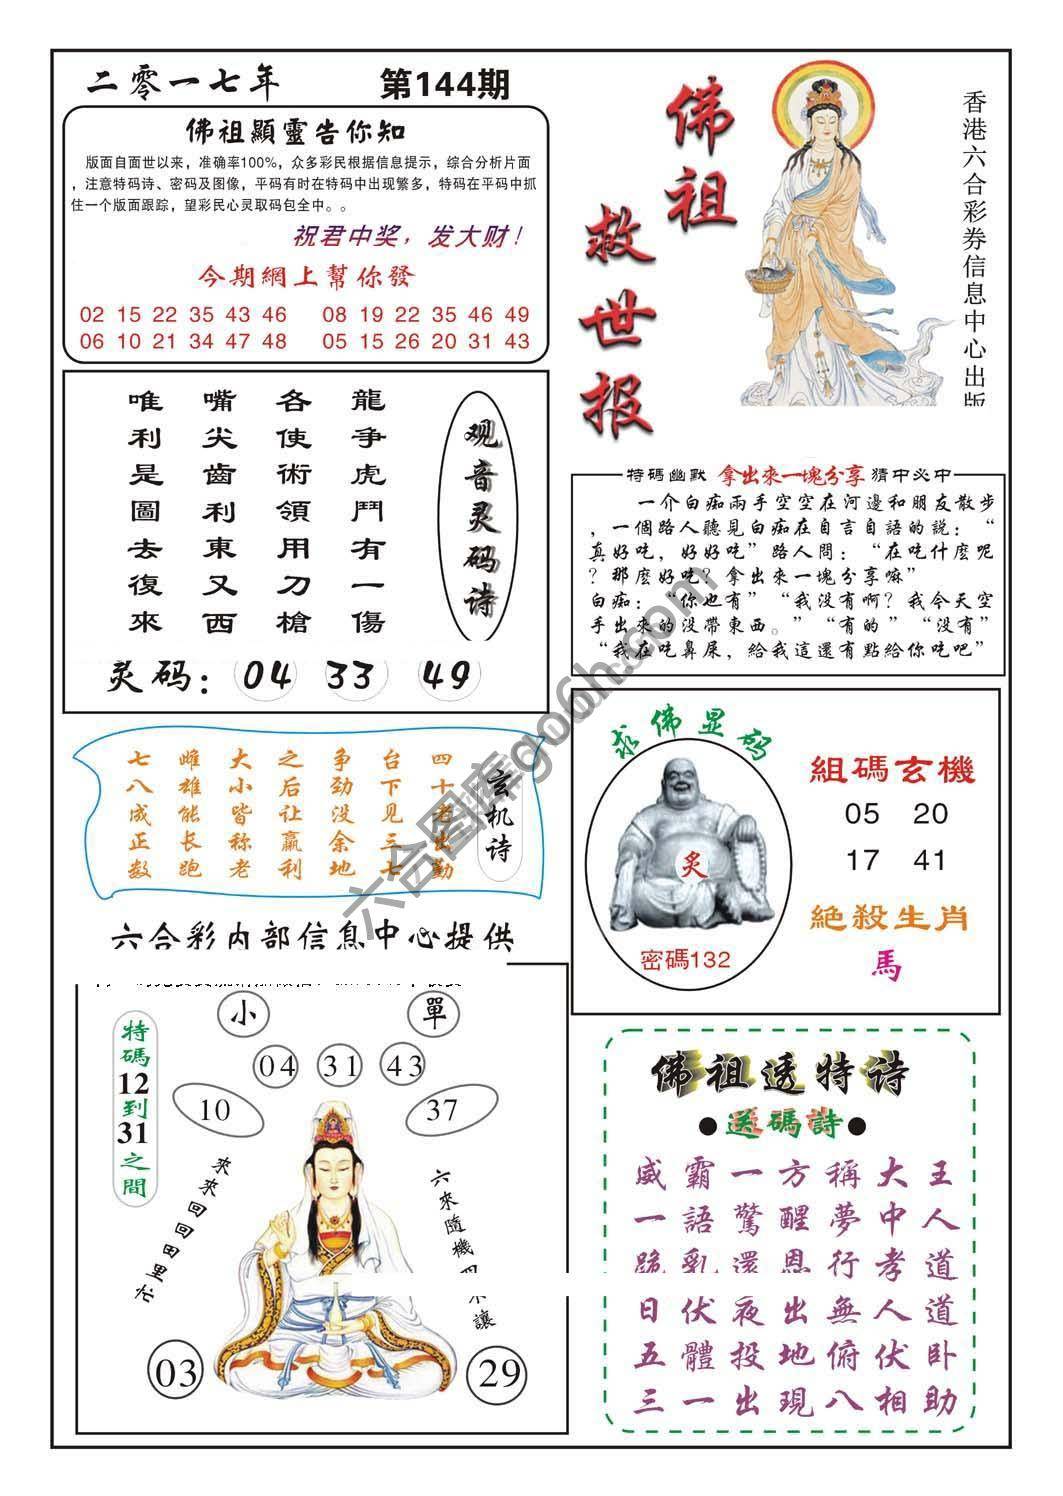 二零一七年
第144期
佛祖顯靈告你知
版面自面世以来，准确率100%，众多彩民根据信息提示，综合分析片面
，注意特码诗、密码及图像，平码有时在特码中出现繁多，特码在平码中抓
住一个版面跟踪，望彩民心灵取码包全中。。
祝君中奖，发大财！
今期網上幫你發
02 15 22 35 43 46 08 19 22 35 46 49
06 10 21 34 47 48 05 15 26 20 31 43
佛祖救世报
香港六合彩券信息中心出版
观音灵码诗
龍爭虎鬥有一傷
各使術領用刀槍
嘴尖齒利東又西
唯利是圖去復來
灵码：04 33 49
特碼幽默 拿出來一塊分享 猜中必中
一介白痴兩手空空在河邊和朋友散步
，一個路人聽見白痴在自言自語的説：“
真好吃，好好吃”路人問：“在吃什麼呢
？那麼好吃？拿出來一塊分享嘛”
白痴：“你也有”“我没有啊？我今天空
手出來的没帶東西。”“有的”“没有”
“我在吃鼻屎，給我這還有點給你吃吧”
玄机诗
四十老出勤
台下见三七
争劲没余地
之后让赢利
大小皆称老
雌雄能长跑
七八成正数
六合图库go6h.com
求佛显码
炙
密碼132
組碼玄機
05 20
17 41
絶殺生肖
馬
六合彩内部信息中心提供
特碼12到31之間
小
單
04 31 43
10
37
來來回回田里忙
六來隨機四
讓
03
29
佛祖透特诗
●送碼詩●
威霸一方稱大王
一語驚醒夢中人
跪乳還恩行孝道
日伏夜出無人道
五體投地俯伏卧
三一出現八相助